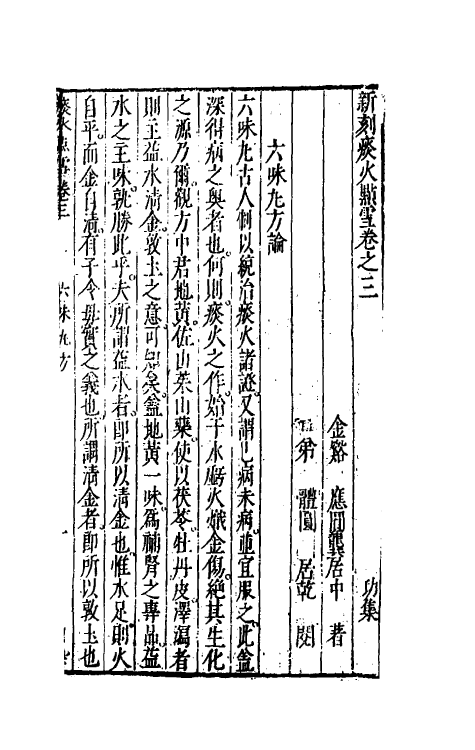 新刻痰火點雪卷之三　功集
金谿　應圓龔居中　著
弟　體圓　居乾　閱
六味丸方論
六味丸古人制以統治痰火諸證又謂已病未病並宜服之此蓋
深得病之奧者也何則痰火之作始于水虧火熾金傷絕其生化
之源乃爾觀方中君地黃佐山茱山藥使以茯苓牡丹皮澤瀉者
則主益水清金敦土之意可知矣蓋地黃一味為補腎之專品益
水之主味孰勝此乎夫所謂益水者即所以清金也惟水足則火
自平而金自清有子令母實之義也所謂清金者即所以敦土也
痰火點雪卷三　六味丸方　一